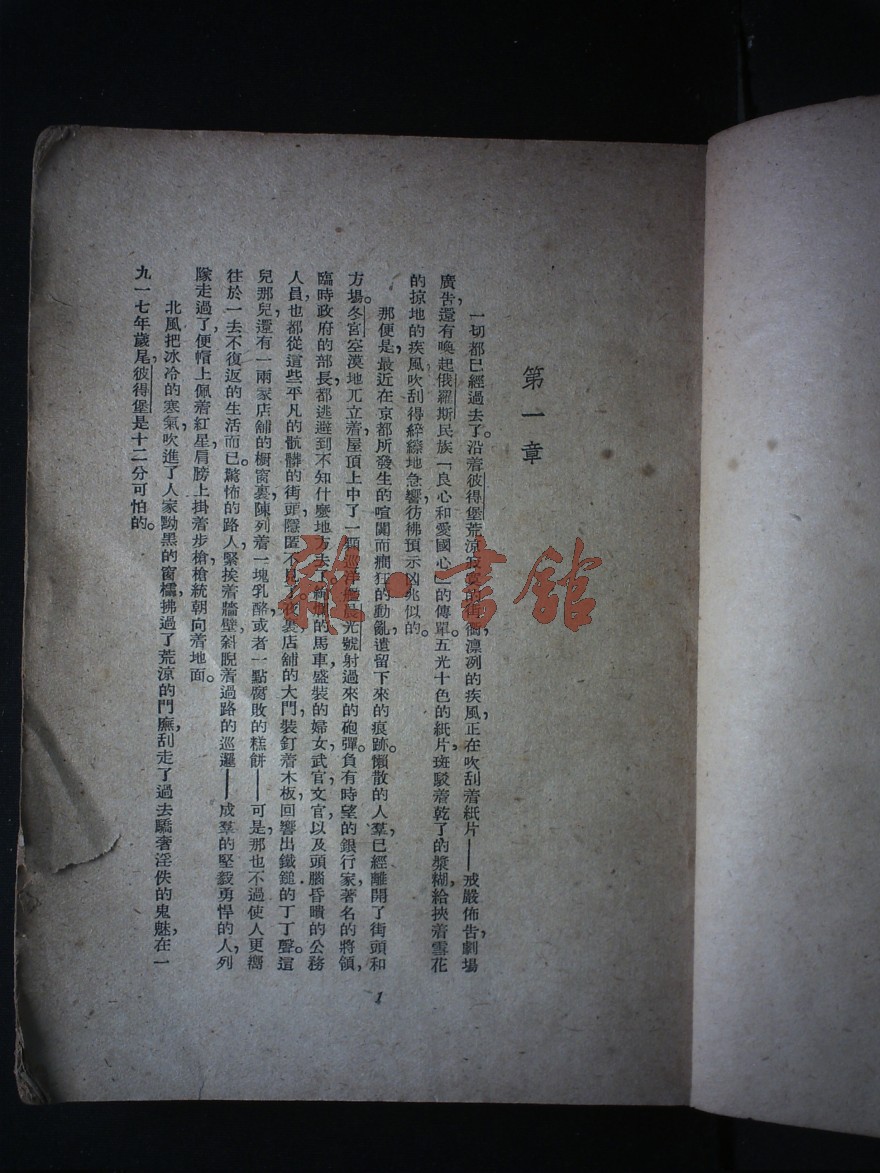 第一章
一切都已經過去了。沿着彼得堡荒涼寂寞的街衢，凛冽的疾風，正在吹刮着紙片——戒嚴佈告，劇場
廣告，還有喚起俄羅斯民族「良心和愛國心」的傳單。五光十色的紙片，斑駁着乾了的漿糊，給挾着雪花
的掠地的疾風吹刮得綷縩地急響，彷彿預示凶兆似的。
那便是最近在京都所發生的喧闐而癇狂的動亂，遺留下來的痕跡。懶散的人羣，已經離開了街頭和
方場。冬宮空漠地兀立着，屋頂上中了一顆巡洋艦晨光號射過來的砲彈。負有時望的銀行家，著名的將領，
臨時政府的部長，都逃避到不知什麼地方去了。絢爛的馬車，盛裝的婦女，武官，文官，以及頭腦昏聵的公務
人員，也都從這些平凡的骯髒的街頭隱匿不見了。夜裏，店舖的大門裝釘着木板，回響出鐵鎚的丁丁聲。這
兒那兒，還有一兩家店舖的櫥窗裏，陳列着一塊乳酪，或者一點腐敗的糕餅——可是，那也不過使人更嚮
往於一去不復返的生活而已。驚怖的路人，緊挨着牆壁，斜睨着過路的巡邏——成羣的堅毅勇悍的人，列
隊走過了，便帽上佩着紅星，肩膀上掛着步槍，槍統朝向着地面。
北風把冰冷的寒氣，吹進了人家黝黑的窗櫺，拂過了荒涼的門廡，刮走了過去驕奢淫佚的鬼魅，在一
九一七年歲尾，彼得堡是十二分可怕的。
1
雜·書舘